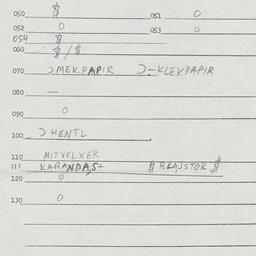 050 $ 051 0
052 0 053 0
054 $
060 $/$
070 MEKPAPIR KLEKPAPIR
080 —
090 0
100 HENTL
110 MITVELXER
111 KARANDAS+ $ BLAJSTOR $
120 0
130 0